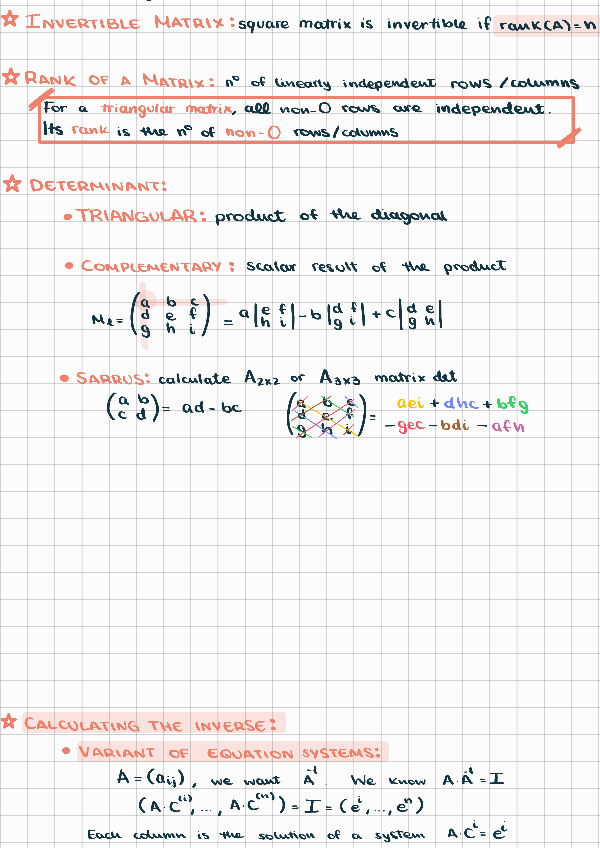 ☆ INVERTIBLE MATRIX: square matrix is invertible if rank(A)=n
☆ RANK OF A MATRIX: nº of linearly independent rows/columns
For a triangular matrix, all non-0 rows are independent.
Its rank is the nº of non-0 rows/columns
☆ DETERMINANT:
• TRIANGULAR: product of the diagonal
• COMPLEMENTARY: scalar result of the product
a b c
d e f
g h i
= a |e f| - b |d f| + c |d e|
|h i| |g i| |g h|
• SARRUS: calculate A2x2 or A3x3 matrix det
(a b
c d) = ad - bc
(a b c
d e f
g h i) =
aei + dhc + bfg
-gec - bdi - afh
☆ CALCULATING THE INVERSE:
• VARIANT OF EQUATION SYSTEMS:
A = (aij), we want A⁻¹. We know A·A⁻¹ = I
(A·C⁽ⁱ⁾, ..., A·C⁽ⁿ⁾) = I = (eⁱ, ..., eⁿ)
Each column is the solution of a system A·Cⁱ = eⁱ